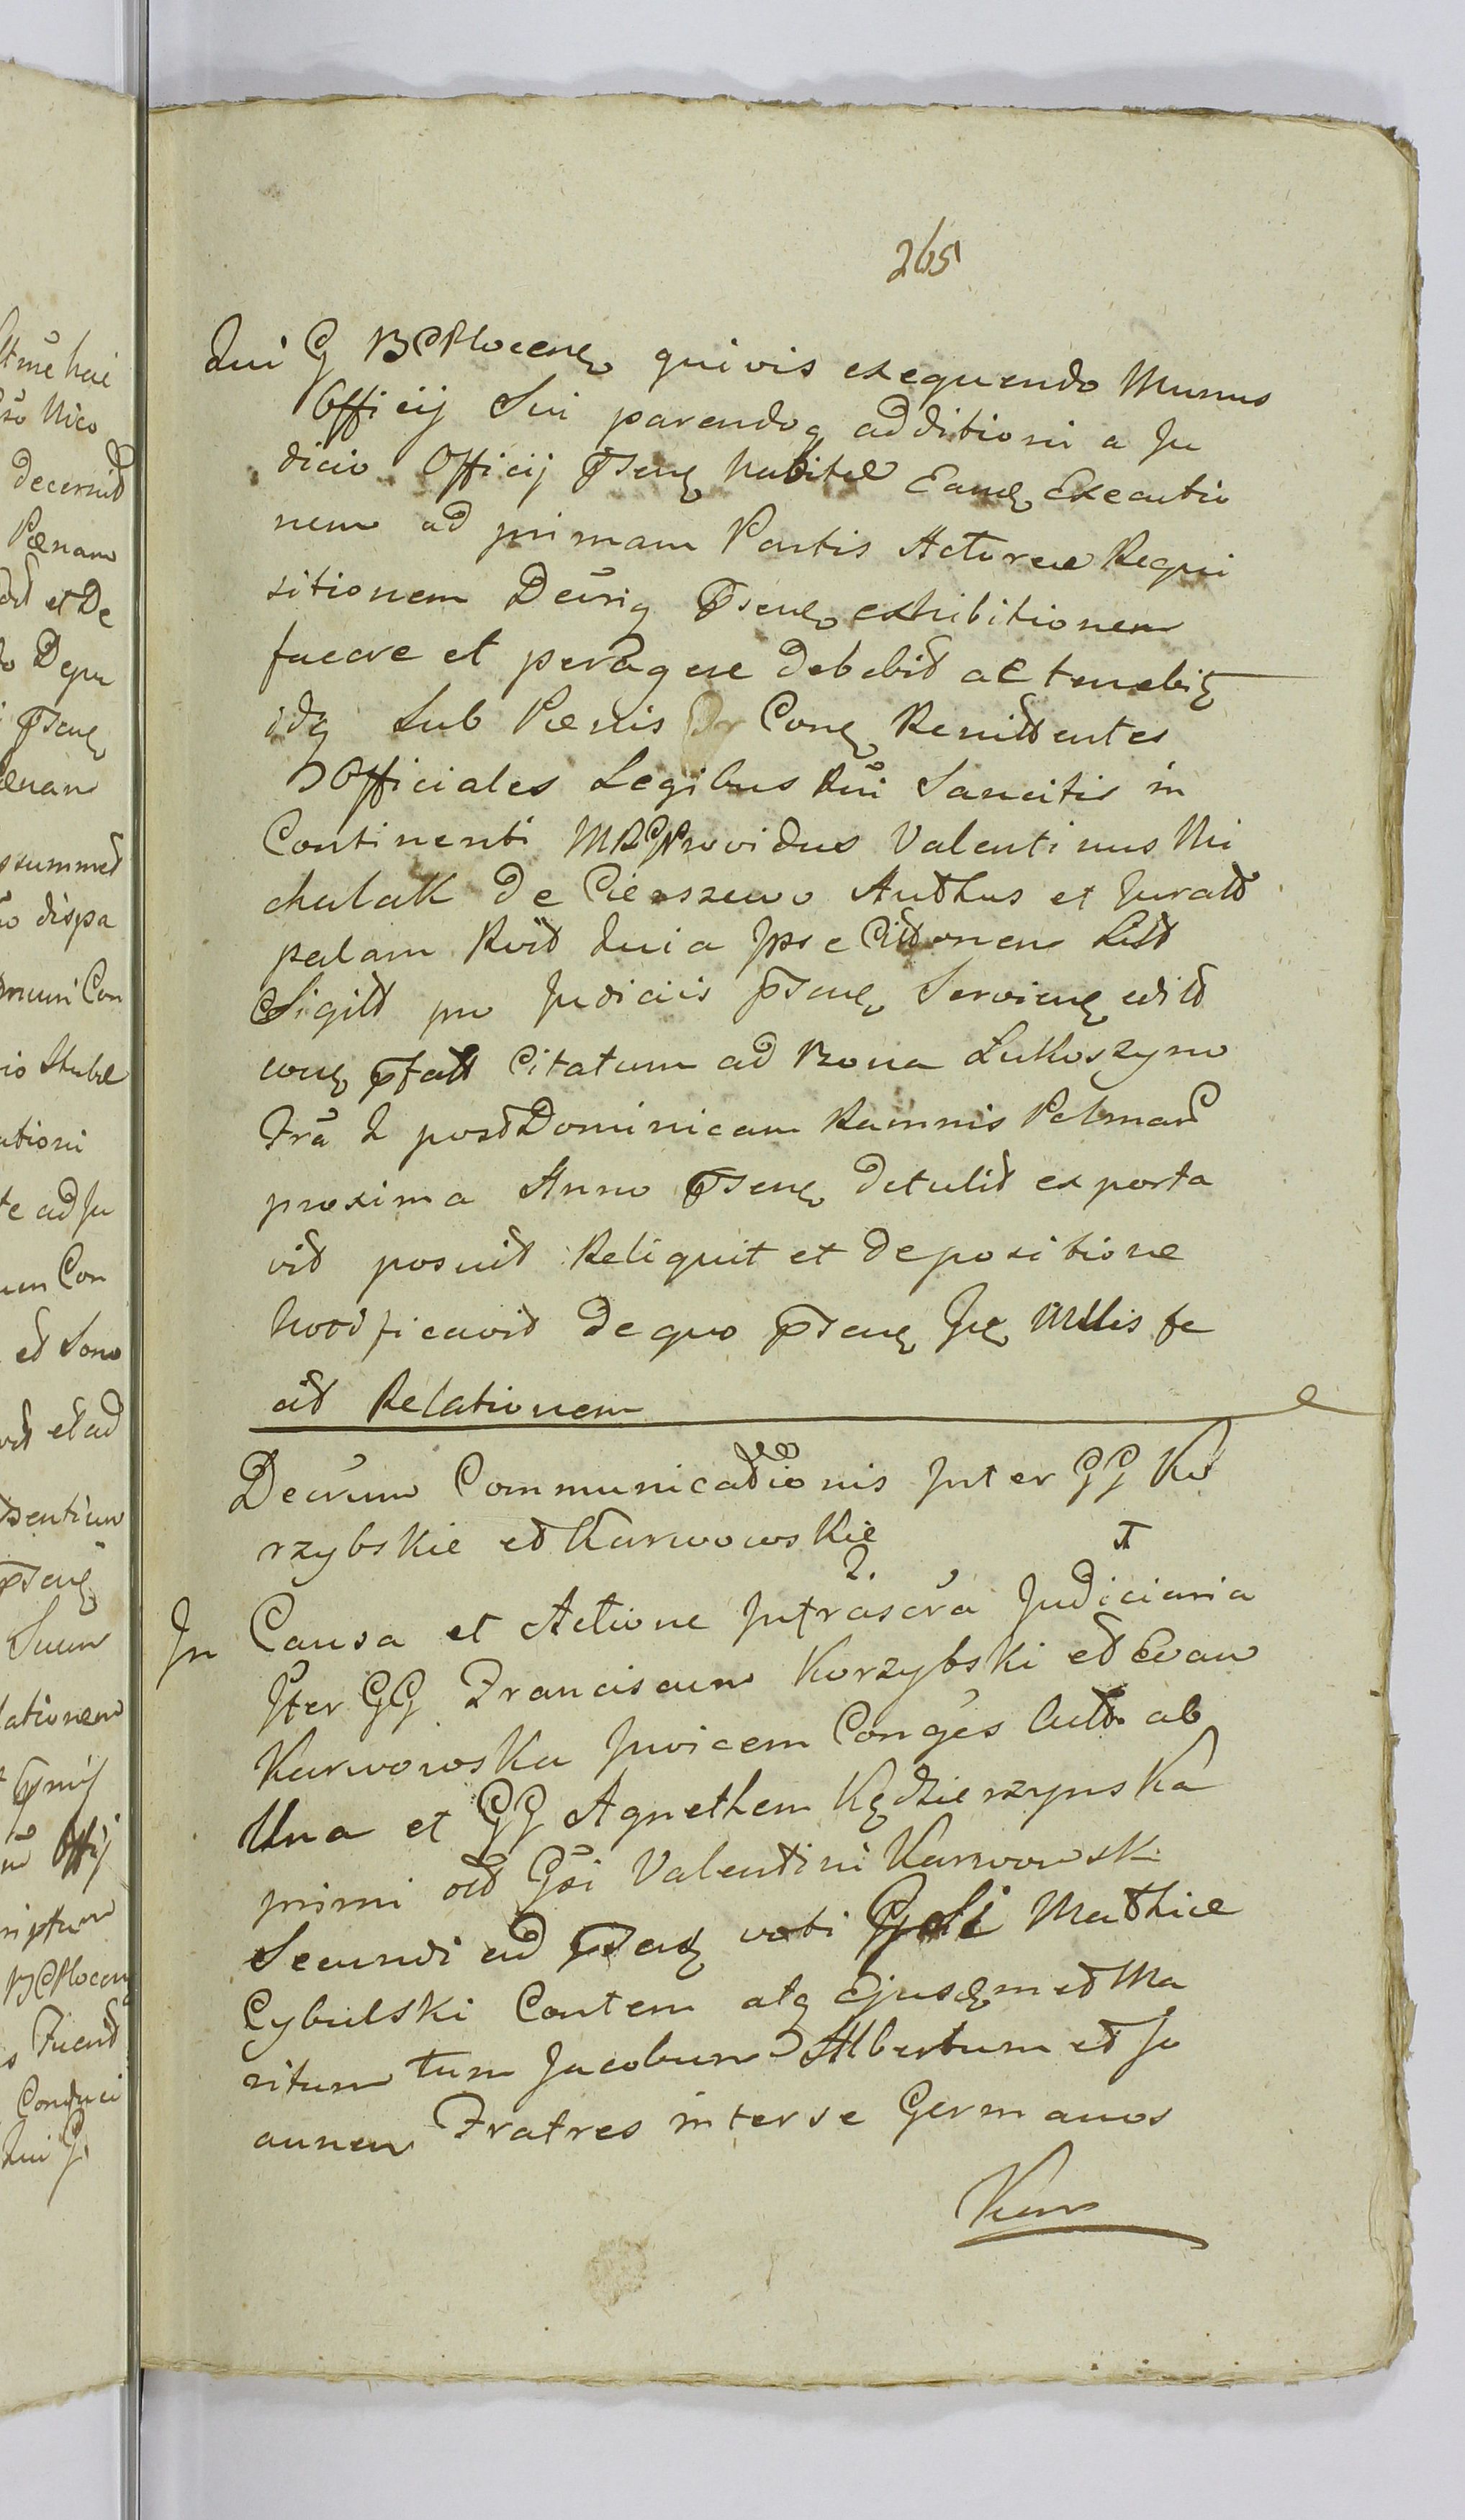 265
Qui G BCPlocens quivis exequendo Munus
Officij Sui parendoq additioni a Ju
dicio Officij pnseng habitae Eamq Executio
nem ad primam Partis Actoreae Requi
sitionem Decriq pnseng exhibitionem
facere et peragere debebit ac tenebiq
idq Sub Paenis Conq Renittentes
Officiales Legibus Sancitis in
Continenti Providus Valentinus Mi
chalak de Cierszewo Authus et Jurat
palam Rvit quia Ipse Citt
Sigilt pro Judiciis pnseng Servieng edit
cong pfatt Citatum ad Bona Lukoszyno
Fra 2 post Dominicam Ramnis Palmar
proxima Anno pnseng detulit exporta
vit posuit Reliquit et depositione
Nootficavit de quo pnseng fe
cit Relationem
Decrum Communicationis Inter GG Ko
rzybskie et Karwowskie
In Causa et Actione Infrascra Judiciaria
Iter GG Franciscum Korzybski et Evam
Karwowska Invicem Conges Actt ab
Una et GG Agnethem Kędzierzynska
primi olt Gsi Valentini Karwowski
Secundi ad pnseng voti Gsi Mathiae
Cybulski Contem atq Ejusqm et Ma
ritum tum Jacobum Albertum et Jo
annem Fratres inter se Germanos
Kar